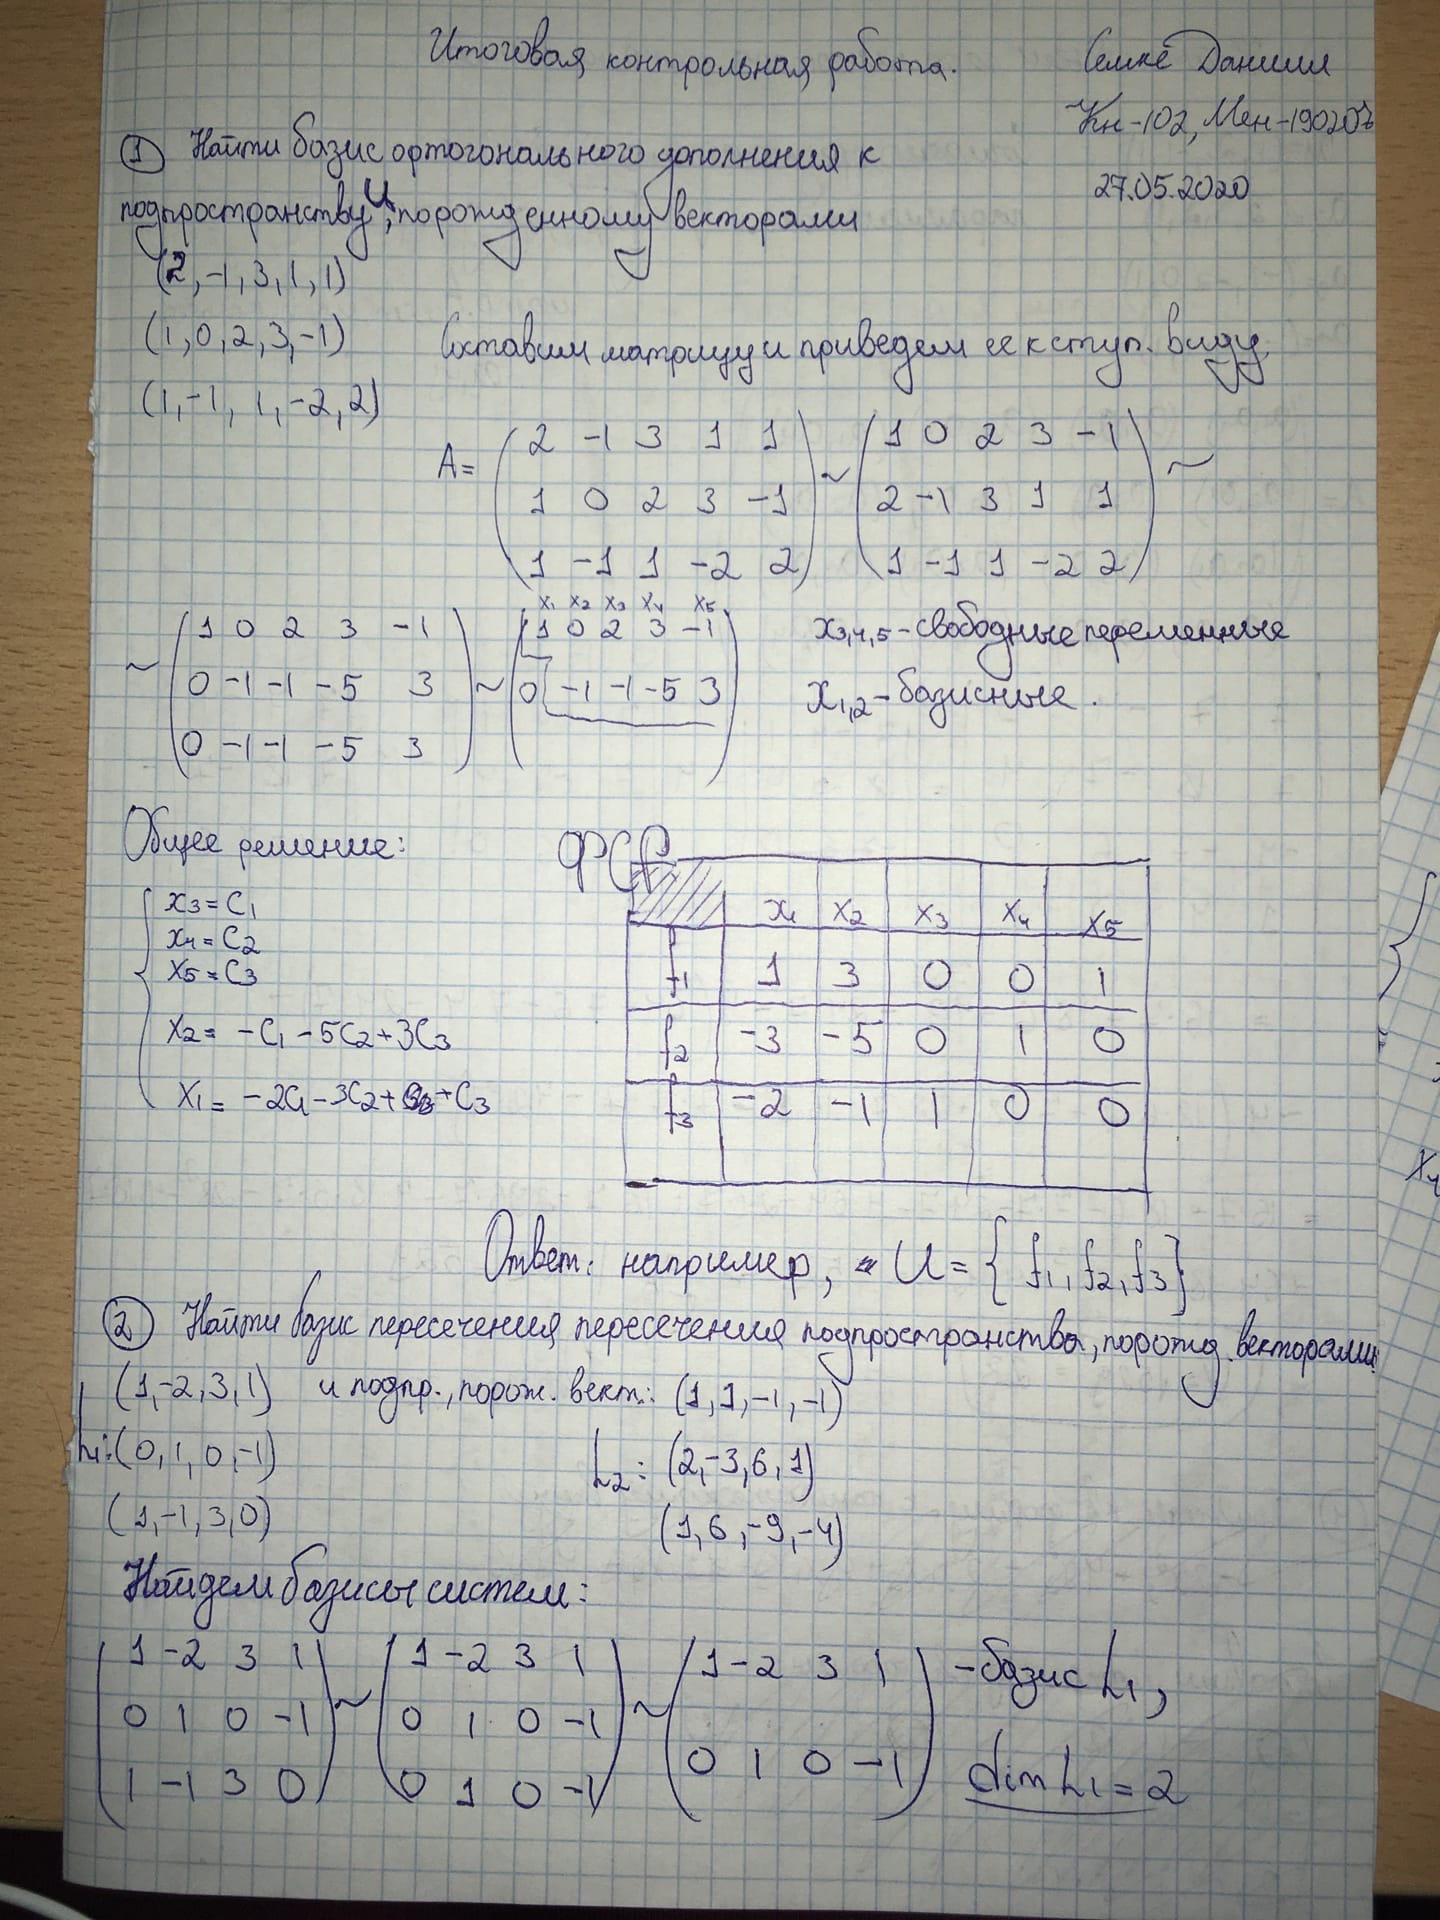 Итоговая контрольная работа.
Семкё Даниил
Кн-102, Мен-190207
27.05.2020
① Найти базис ортогонального дополнения к
подпространству U, порожденному векторами
(2,-1,3,1,1)
(1,0,2,3,-1)
(1,-1,1,-2,2)
Составим матрицу и приведем ее к ступ. виду
A= (2 -1 3 1 1) ~ (1 0 2 3 -1) ~
1 0 2 3 -1 2 -1 3 1 1
1 -1 1 -2 2 1 -1 1 -2 2
x1 x2 x3 x4 x5
~ (1 0 2 3 -1) ~ (1 0 2 3 -1) x3,4,5 - свободные переменные
0 -1 -1 -5 3 0 -1 -1 -5 3 x1,2 - базисные.
0 -1 -1 -5 3
Общее решение:
x3 = C1
x4 = C2
x5 = C3
x2 = -C1 - 5C2 + 3C3
x1 = -2C1 - 3C2 + C3
ФСР
x1 x2 x3 x4 x5
f1 1 3 0 0 1
f2 -3 -5 0 1 0
f3 -2 -1 1 0 0
Ответ: например, U = {f1, f2, f3}
② Найти базис пересечения пересечения подпространства, порожд. векторами
(1,-2,3,1) и подпр., порож. вект.: (1,1,-1,-1)
L1: (0,1,0,-1) L2: (2,-3,6,1)
(1,-1,3,0) (1,6,-9,-4)
Найдем базисы систем:
(1 -2 3 1) ~ (1 -2 3 1) ~ (1 -2 3 1) - базис L1,
0 1 0 -1 0 1 0 -1 0 1 0 -1
1 -1 3 0 0 1 0 -1 dim L1 = 2
x4